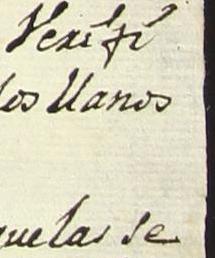 Verifi
los Llanos
quelas se